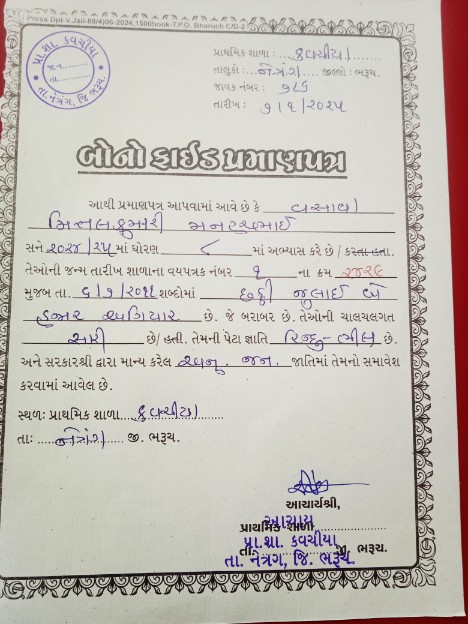 Press Dpt-V.Jail-88/4)06-2024,1500book-T.P.O. Bharuch C/D-2
પ્રા.શા. કવચીયા
જા.ન.
તા.
તા. નેત્રંગ, જિ. ભરૂચ.
પ્રાથમિક શાળા : કવચીયા
તાલુકો : નેત્રંગ જીલ્લો : ભરૂચ
જાવક નંબર : ૧૮૬
તારીખ : ૭/૧/૨૦૨૫
બોનો ફાઈડ પ્રમાણપત્ર
આથી પ્રમાણપત્ર આપવામાં આવે છે કે વસાવા
મિતલકુમારી
સને ૨૦૨૪/૨૫ માં ધોરણ ૮ માં અભ્યાસ કરે છે / કરતા હતા.
તેઓની જન્મ તારીખ શાળાના વયપત્રક નંબર ૧ ના ક્રમ
મુજબ તા. ૬/૭/૨૦૧૧ શબ્દોમાં છઠ્ઠી જુલાઈ બે
હજાર અગિયાર છે. જે બરાબર છે. તેઓની ચાલચલગત
સારી છે/ હતી. તેમની પેટા જ્ઞાતિ હિન્દુ-ભીલ છે.
અને સરકારશ્રી દ્વારા માન્ય કરેલ અનુ. જન. જાતિમાં તેમનો સમાવેશ
કરવામાં આવેલ છે.
સ્થળઃ પ્રાથમિક શાળા કવચીયા
તાઃ નેત્રંગ જી. ભરૂચ.
આચાર્યશ્રી,
પ્રાથમિક શાળા
આચાર્ય
પ્રા.શા. કવચીયા
તા. જી. ભરૂચ.
તા. નેત્રંગ, જિ. ભરૂચ.